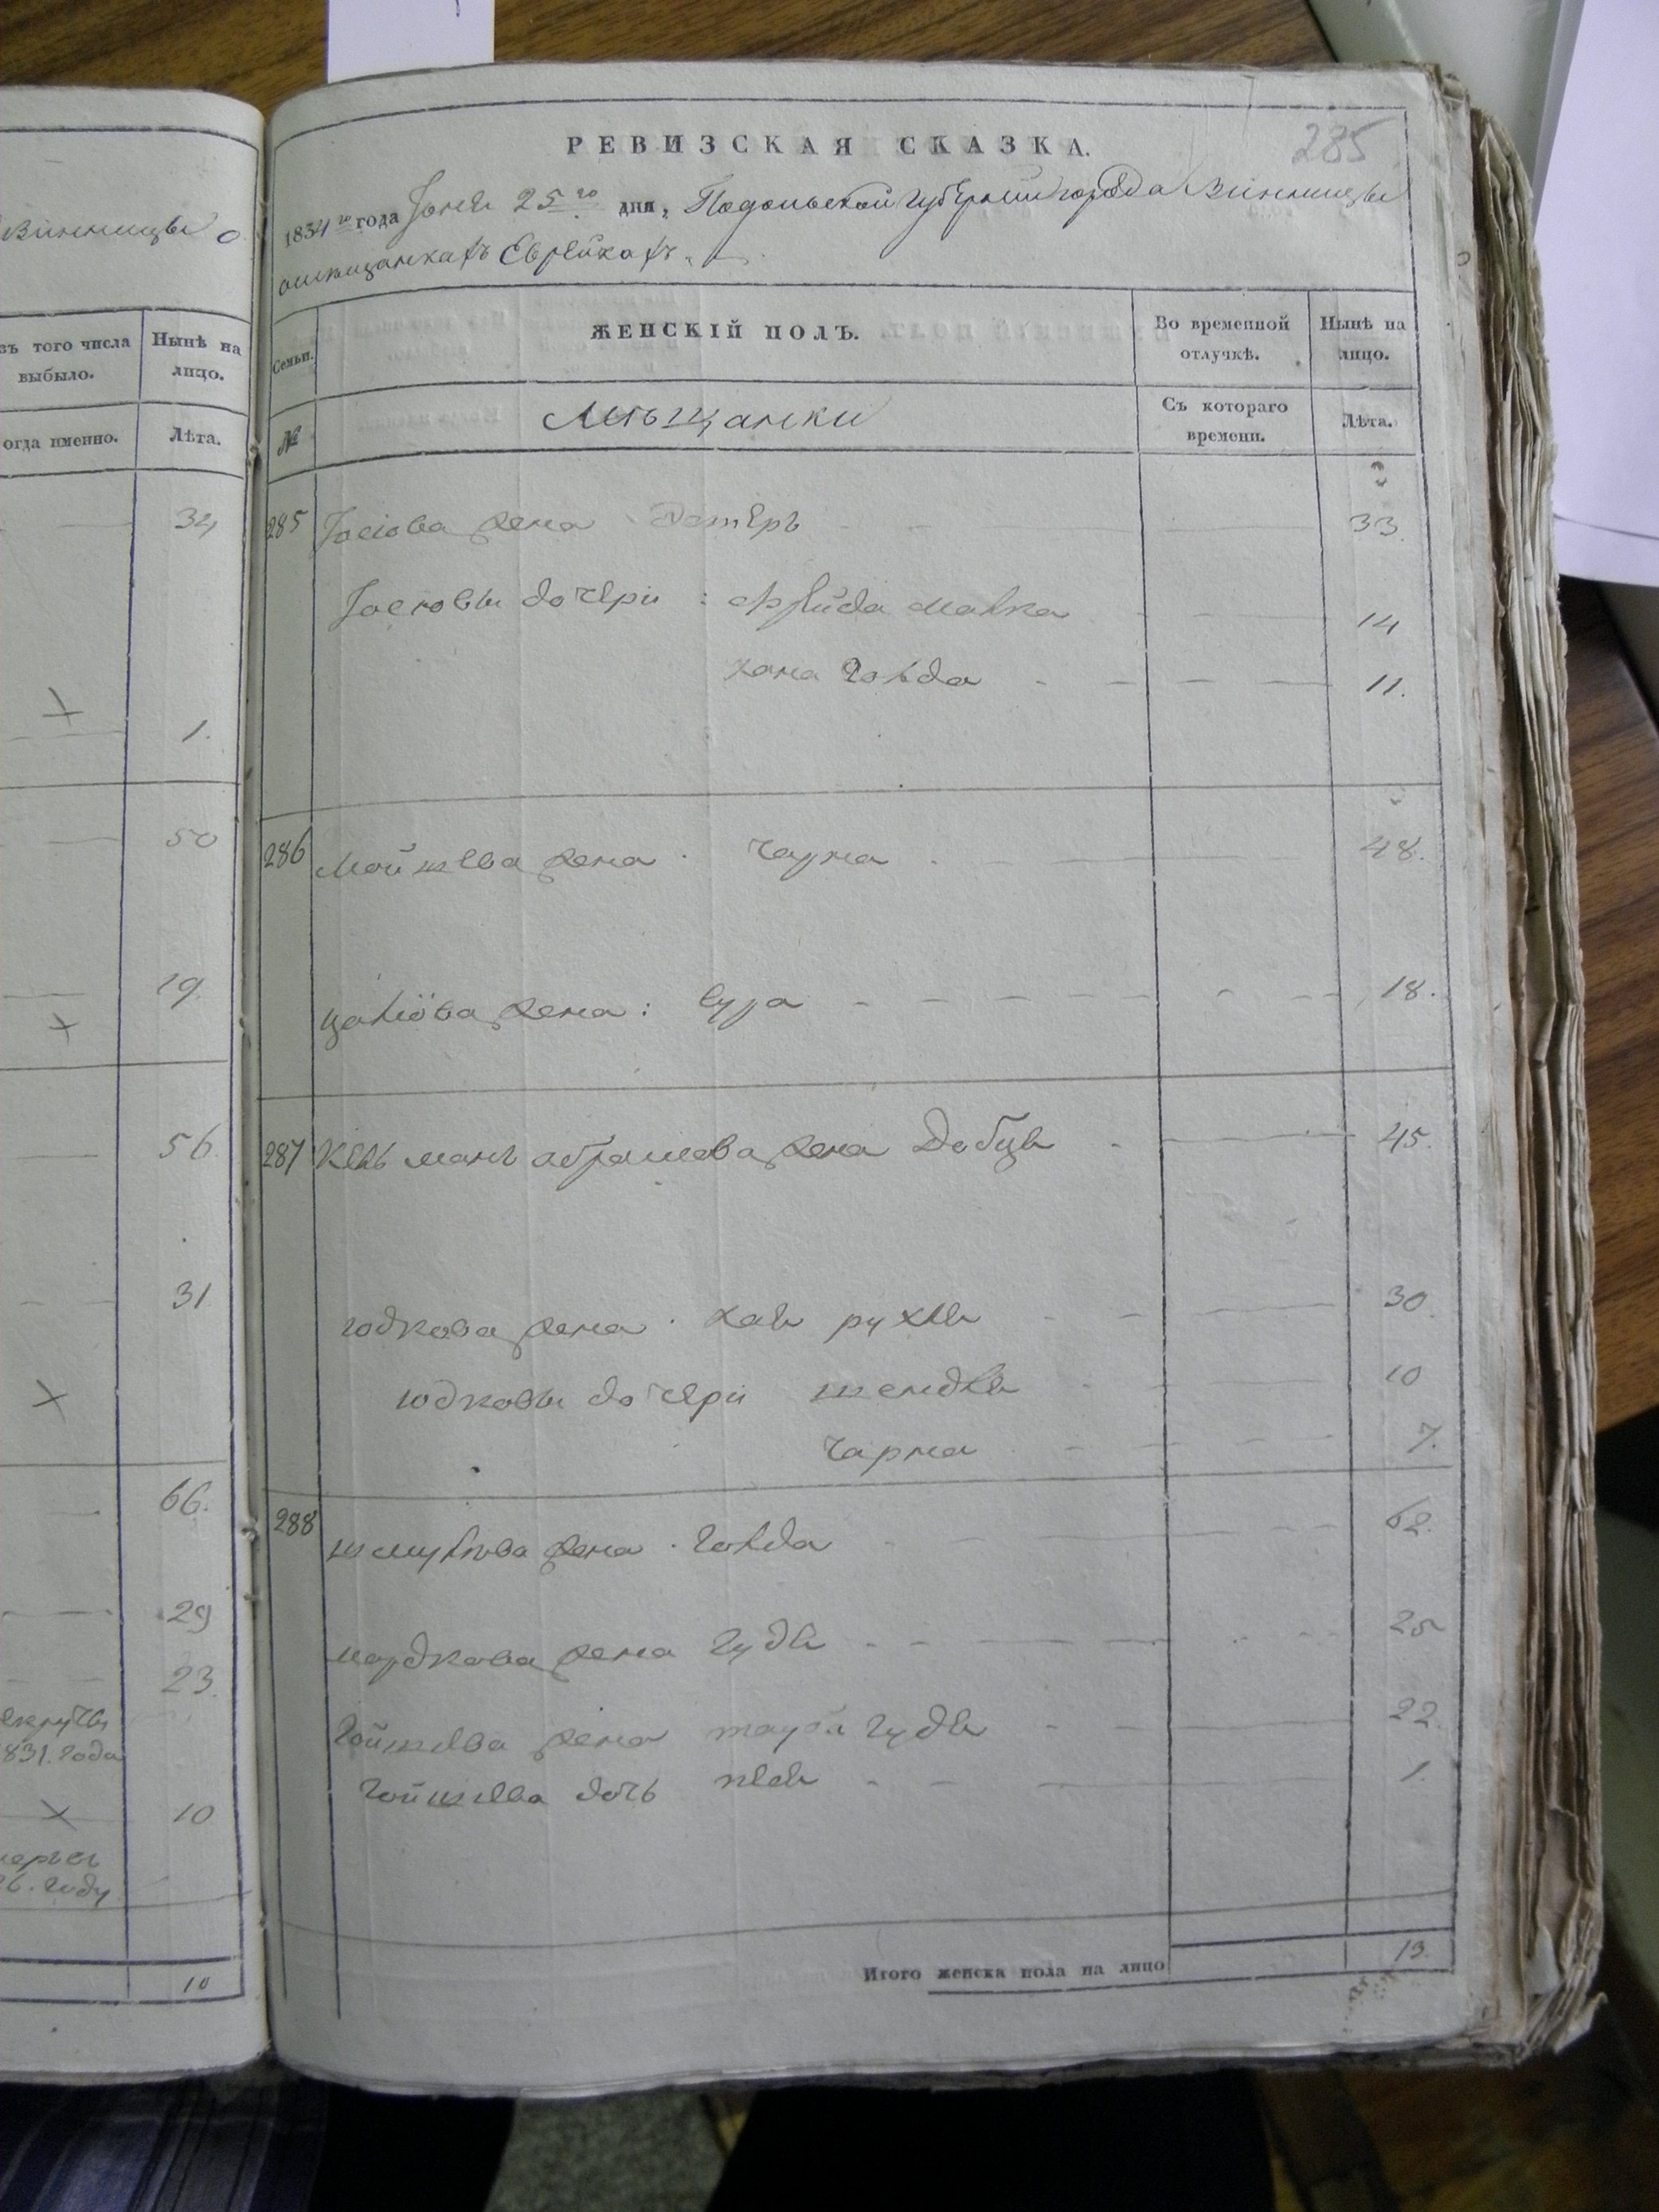 Винницы о
зъ того числа выбыло.
Нынѣ на лицо.
огда именно.
Лѣта.
34
1.
50
19.
56.
31
66.
29
23.
831. года
10
26. году
10
285
РЕВИЗСКАЯ СКАЗКА.
1834 го года Іюня 25 го дня, Подольской Губерніи города Винницы
о мѣщанкахъ Еврейкахъ.
Семьи.
ЖЕНСКІЙ ПОЛЪ.
Во временной отлучкѣ.
Нынѣ на лицо.
№
Мѣщанки
Съ котораго времени.
Лѣта.
285 Іосіова жена Эстеръ 33.
Іосіовы дочери: Фрейда Малка 14
Хана Голда 11.
286 Мойшева жена Чарна 48.
Цалiова жена: Сура 18.
287 Кельманъ Абрамова жена Добце 45.
Юдкова жена Хае Рухле 30.
Юдковы дочери Шендле 10
Чарна 7.
288 Шмулiова жена Голда 62.
Мордкова жена Гудя 25
Гойшева жена Гудя 22.
Гойшева дочь 1.
Итого женска пола на лицо 13.